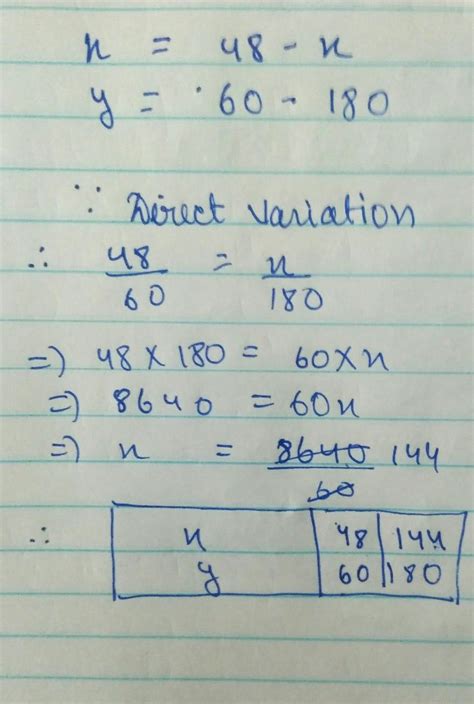 x = 48 - x
y = 60 - 180
∵ Direct Variation
∴ 48/60 = x/180
=> 48 × 180 = 60 × x
=> 8640 = 60x
=> x = 8640/60 144
∴ x 48 144
y 60 180